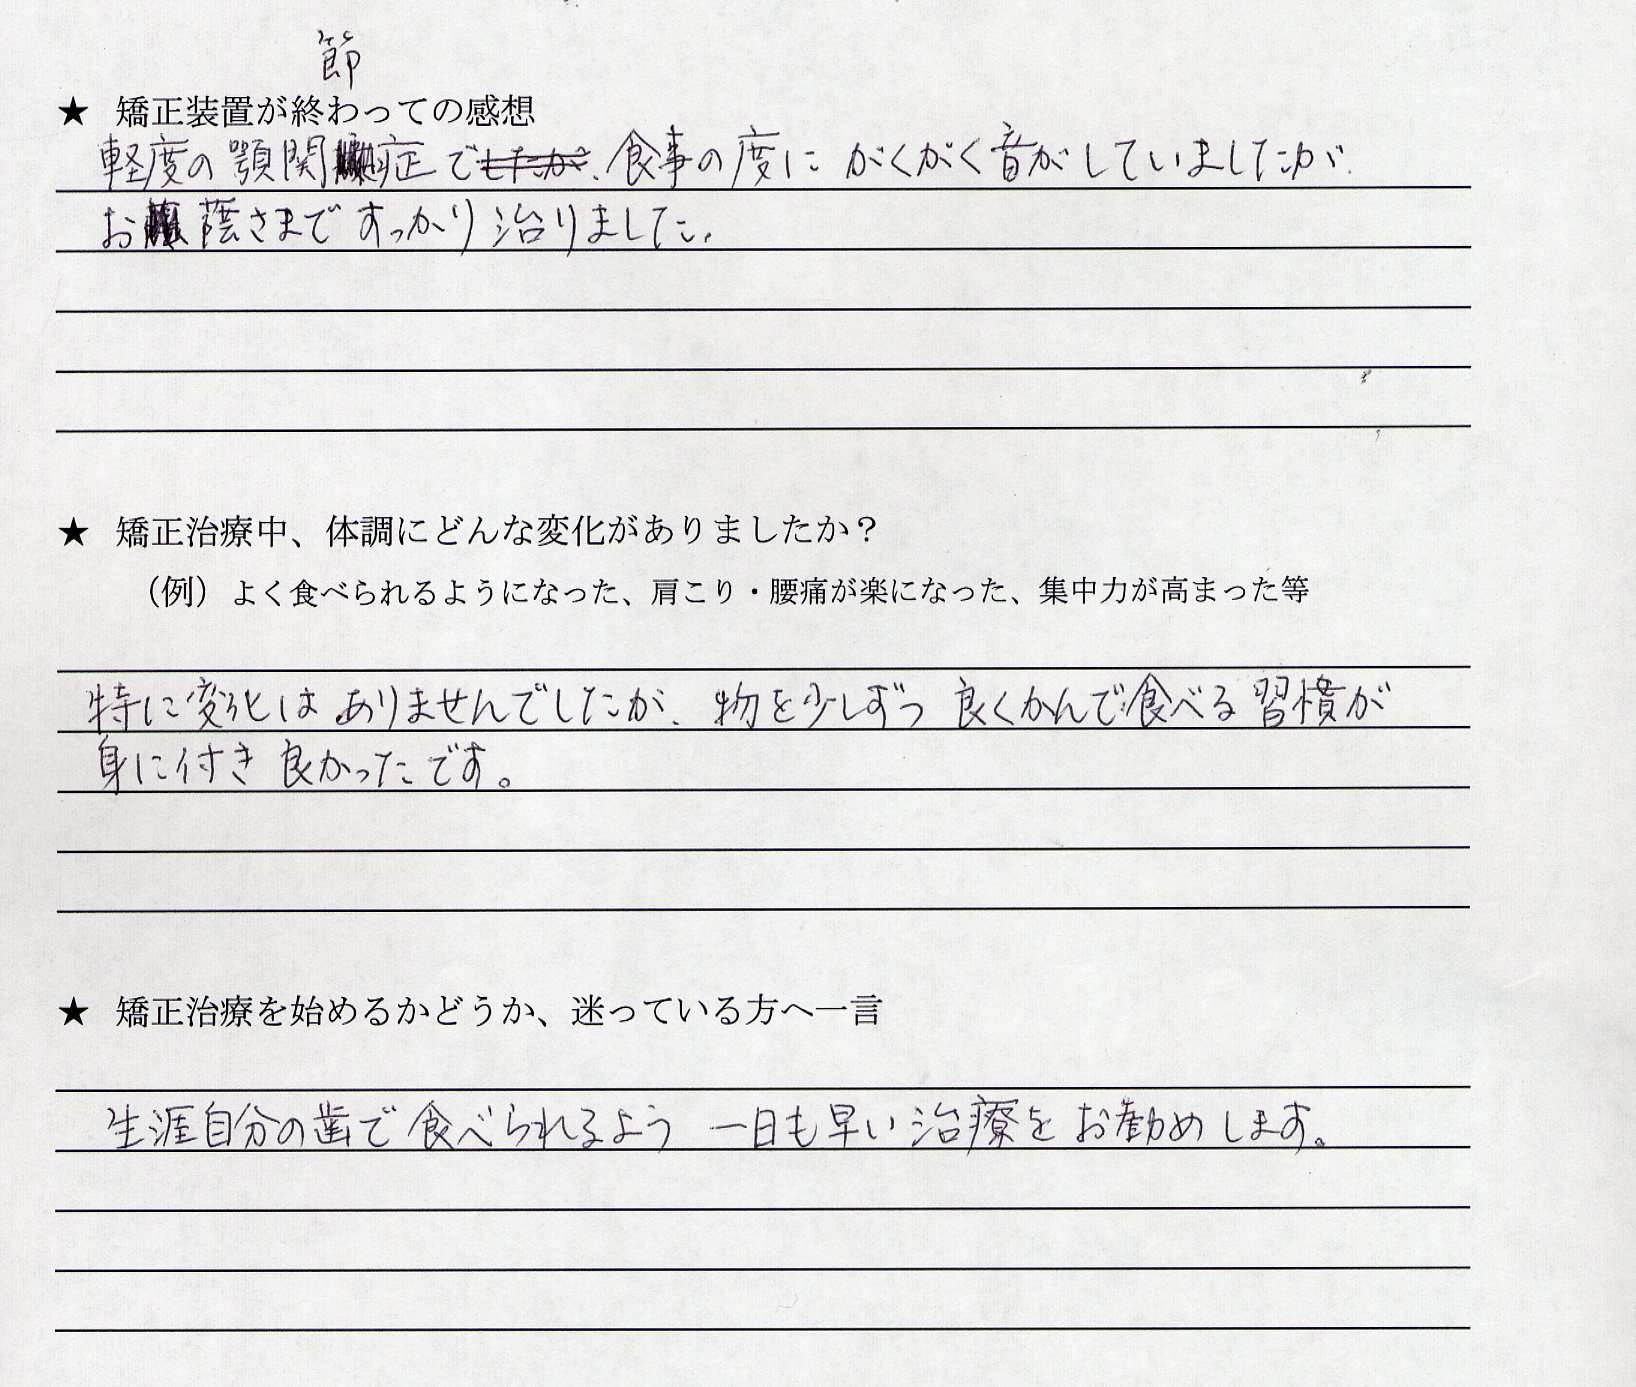 節
★ 矯正装置が終わっての感想
軽度の顎関症で、食事の度に がくがく音がしていましたが、
お蔭さまで すっかり 治りました。
★ 矯正治療中、体調にどんな変化がありましたか？
（例）よく食べられるようになった、肩こり・腰痛が楽になった、集中力が高まった等
特に変化は ありませんでしたが、物を少しずつ 良くかんで食べる 習慣が
身に付き 良かったです。
★ 矯正治療を始めるかどうか、迷っている方へ一言
生涯自分の歯で 食べられるよう 一日も早い治療を お勧めします。